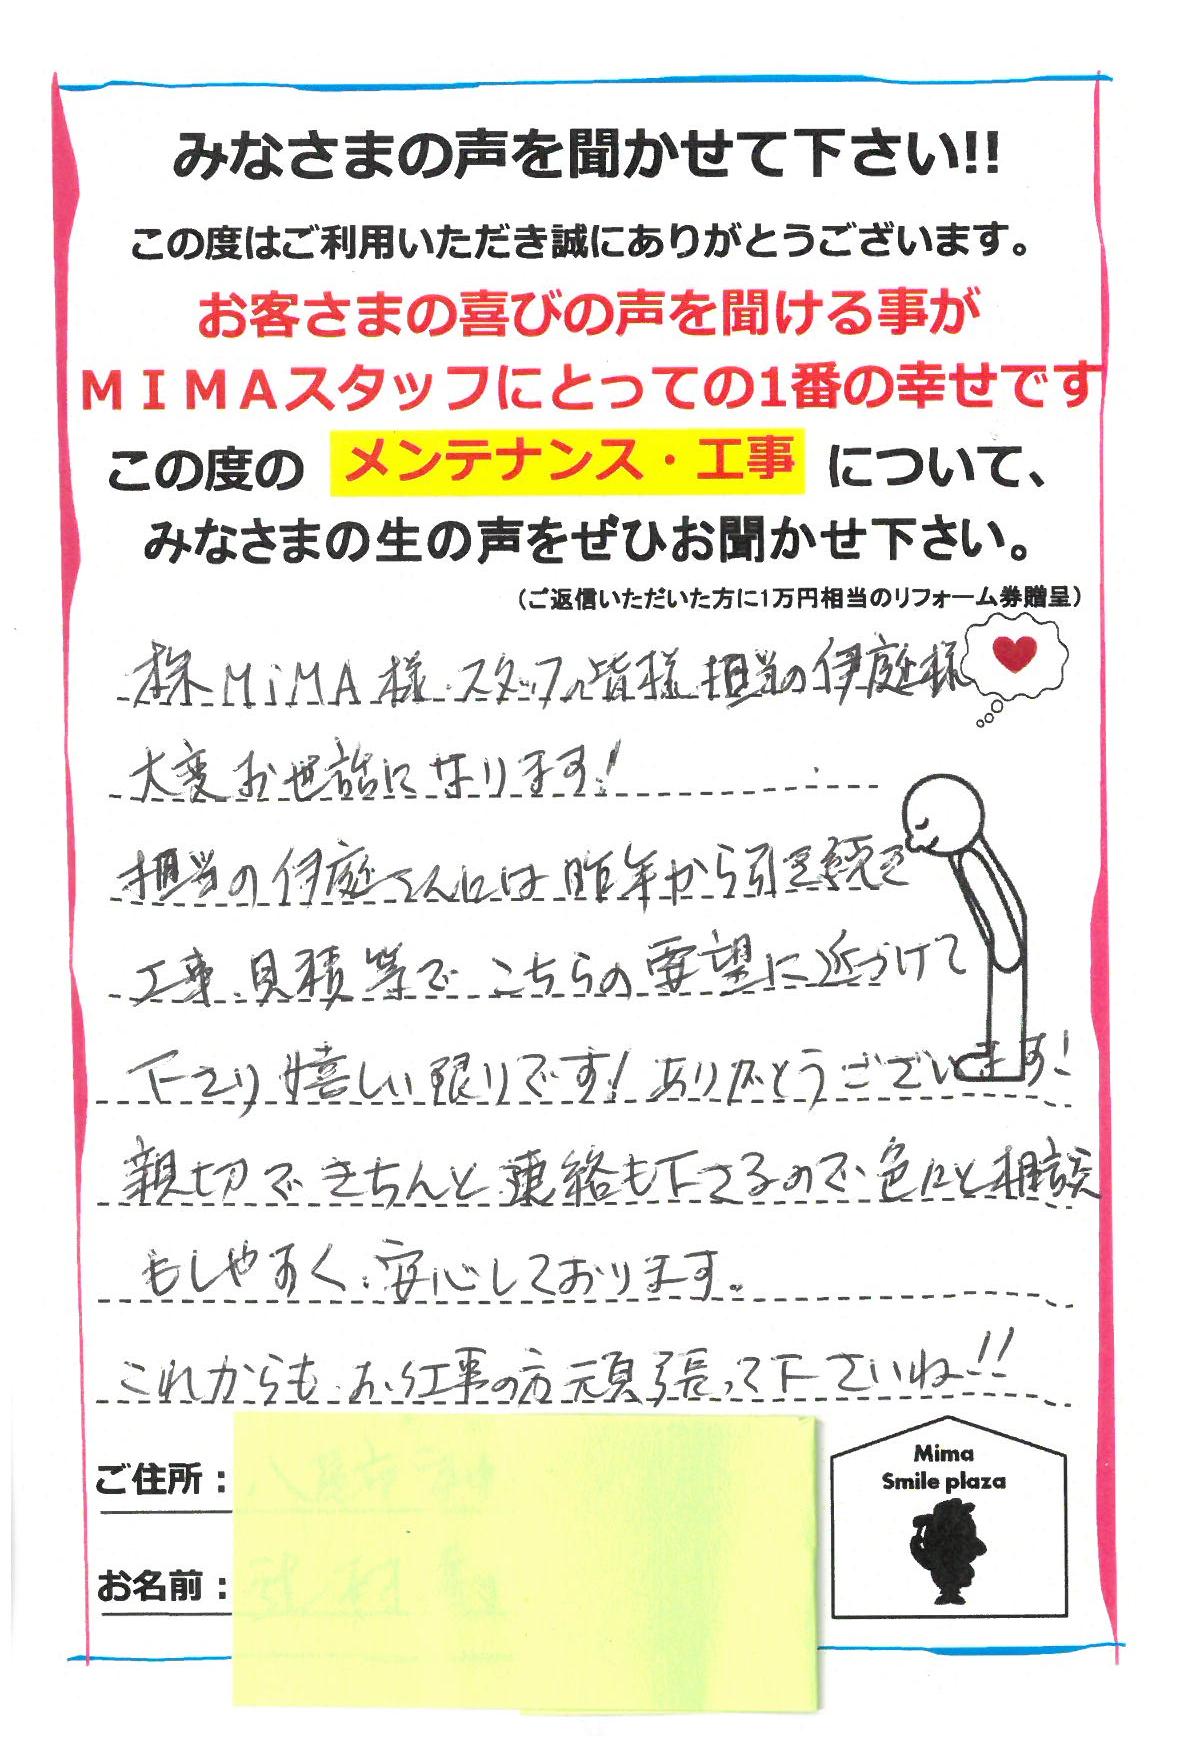 みなさまの声を聞かせて下さい!!
この度はご利用いただき誠にありがとうございます。
お客さまの喜びの声を聞ける事が
ＭＩＭＡスタッフにとっての1番の幸せです
この度の メンテナンス・工事 について、
みなさまの生の声をぜひお聞かせ下さい。
（ご返信いただいた方に1万円相当のリフォーム券贈呈）
株MiMA様 スタッフ皆様 担当の伊庭様
大変お世話になります!
担当の伊庭さんには昨年から引き続き
工事、見積等で こちらの要望に近づけて
下さり嬉しい限りです! ありがとうございます!
親切できちんと連絡も下さるので色々と相談
もしやすく、安心しております。
これからもお仕事の方頑張って下さいね!!
ご住所：
お名前：
Mima
Smile plaza